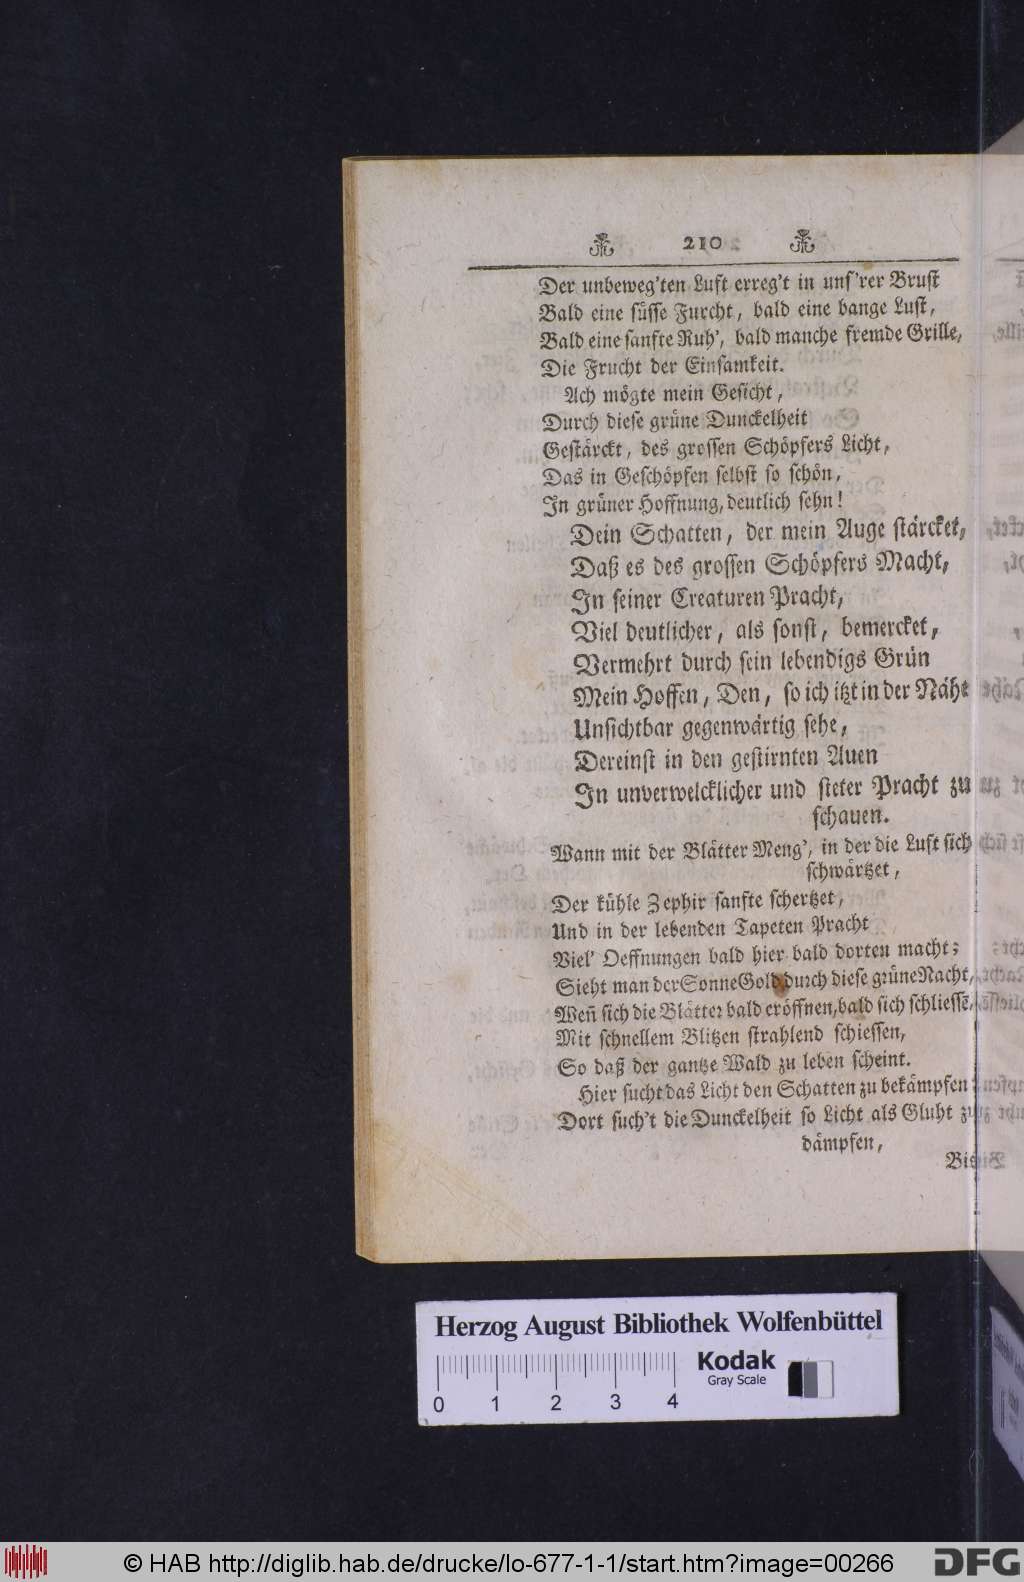 210
Der unbeweg'ten Luft erreg't in uns'rer Brust
Bald eine süsse Furcht, bald eine bange Lust,
Bald eine sanfte Ruh', bald manche fremde Grille,
Die Frucht der Einsamkeit.
Ach mögte mein Gesicht,
Durch diese grüne Dunckelheit
Gestärckt, des grossen Schöpfers Licht,
Das in Geschöpfen selbst so schön,
In grüner Hoffnung, deutlich sehn!
Dein Schatten, der mein Auge stärcket,
Daß es des grossen Schöpfers Macht,
In seiner Creaturen Pracht,
Viel deutlicher, als sonst, bemercket,
Vermehrt durch sein lebendigs Grün
Mein Hoffen, Den, so ich itzt in der Nähe
Unsichtbar gegenwärtig sehe,
Dereinst in den gestirnten Auen
In unverwelcklicher und steter Pracht zu
schauen.
Wann mit der Blätter Meng', in der die Luft sich
schwärtzet,
Der kühle Zephir sanfte schertzet,
Und in der lebenden Tapeten Pracht
Viel' Oeffnungen bald hier bald dorten macht;
Sieht man der Sonne Gold durch diese grüne Nacht,
Weñ sich die Blätter bald eröffnen, bald sich schliessẽ,
Mit schnellem Blitzen strahlend schiessen,
So daß der gantze Wald zu leben scheint.
Hier sucht das Licht den Schatten zu bekämpfen
Dort such't die Dunckelheit so Licht als Gluht zu
dämpfen,
Bis
Herzog August Bibliothek Wolfenbüttel
Kodak
Gray Scale
0 1 2 3 4
© HAB http://diglib.hab.de/drucke/lo-677-1-1/start.htm?image=00266
DFG